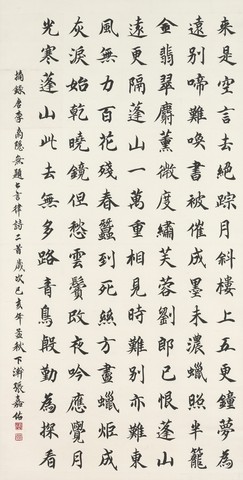 來是空言去絕踪月斜樓上五更鐘夢為
遠別啼難喚書被催成墨未濃蠟照半籠
金翡翠麝薰微度繡芙蓉劉郎已恨蓬山
遠更隔蓬山一萬重相見時難別亦難東
風無力百花殘春蠶到死絲方盡蠟炬成
灰淚始乾曉鏡但愁雲鬢改夜吟應覺月
光寒蓬山此去無多路青鳥殷勤為探看
摘錄唐李商隱無題七言律詩二首歲次己亥年孟秋下澣張嘉佑